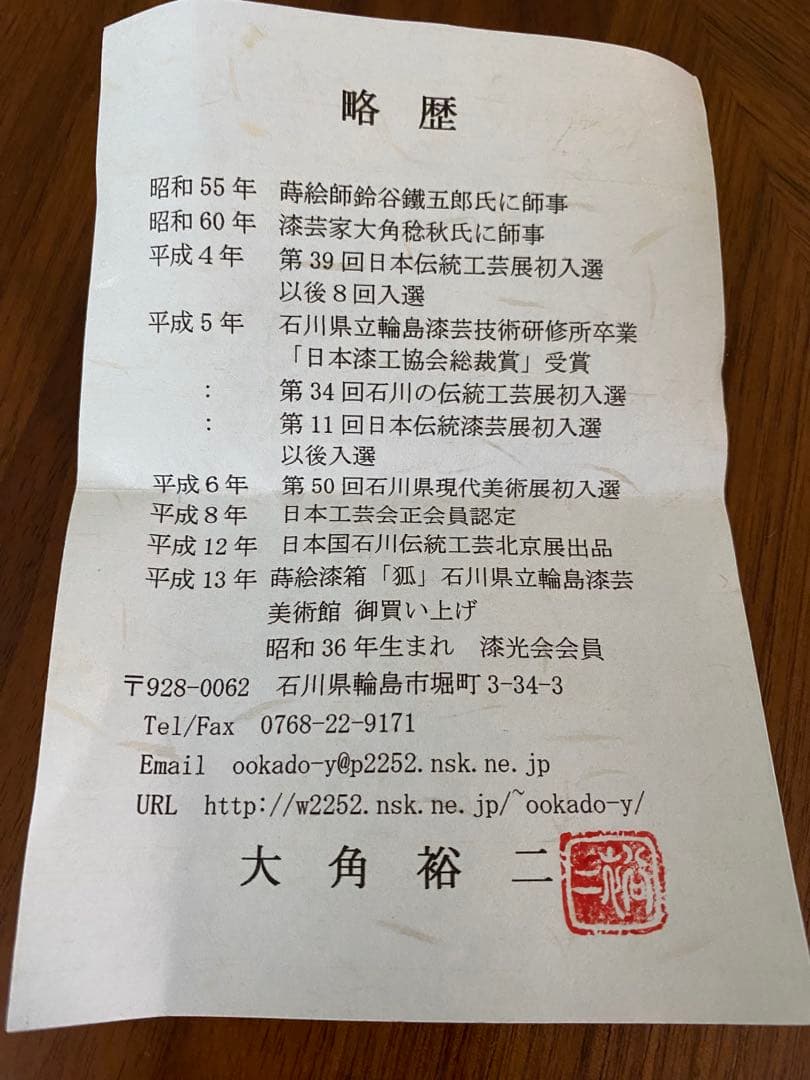 略歴
昭和55年 蒔絵師鈴谷鐵五郎氏に師事
昭和60年 漆芸家大角稔秋氏に師事
平成4年 第39回日本伝統工芸展初入選
以後8回入選
平成5年 石川県立輪島漆芸技術研修所卒業
「日本漆工協会総裁賞」受賞
: 第34回石川の伝統工芸展初入選
: 第11回日本伝統漆芸展初入選
以後入選
平成6年 第50回石川県現代美術展初入選
平成8年 日本工芸会正会員認定
平成12年 日本国石川伝統工芸北京展出品
平成13年 蒔絵漆箱「狐」石川県立輪島漆芸
美術館 御買い上げ
昭和36年生まれ 漆光会会員
〒928-0062 石川県輪島市堀町3-34-3
Tel/Fax 0768-22-9171
Email ookado-y@p2252.nsk.ne.jp
URL http://w2252.nsk.ne.jp/~ookado-y/
大角裕二
裕二